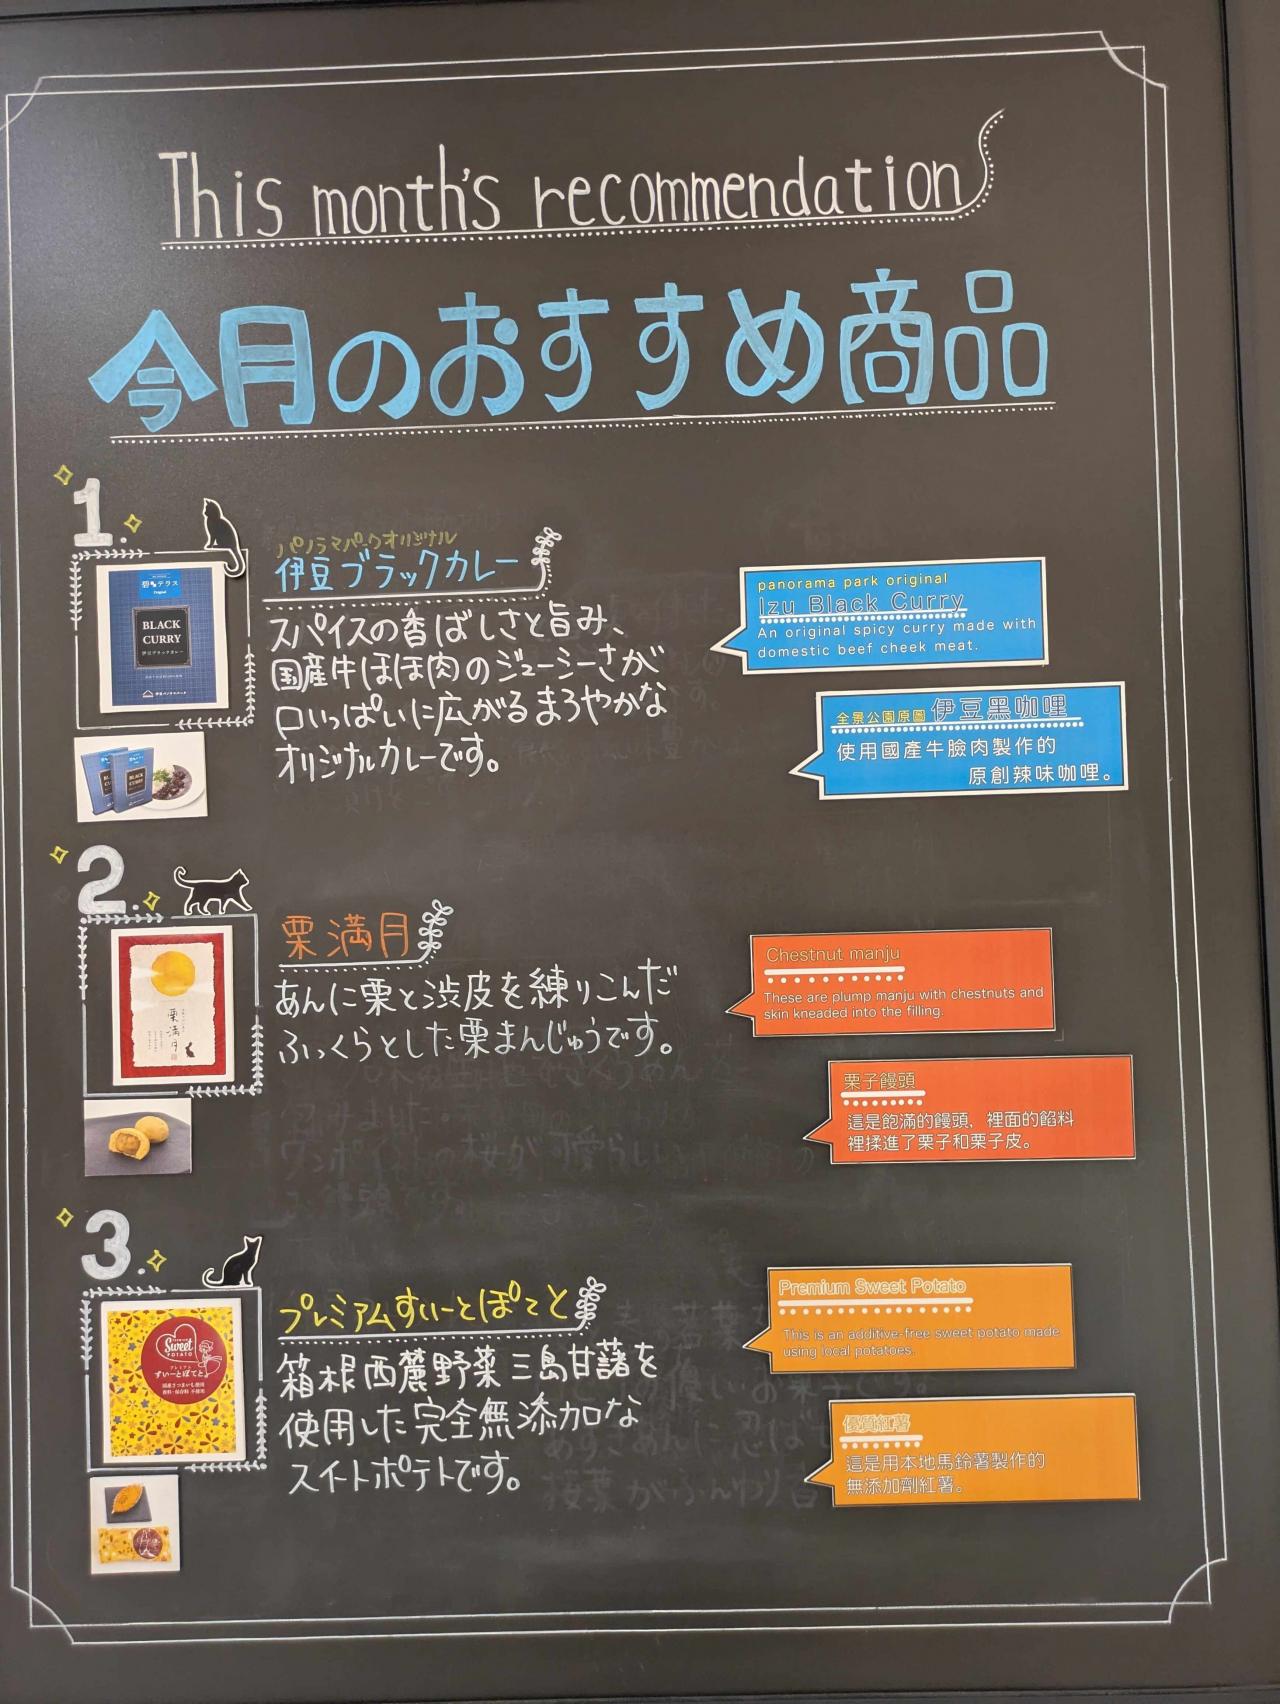 This month's recommendation
今月のおすすめ商品
1.
碧テラス
Original
BLACK
CURRY
伊豆ブラックカレー
伊豆パノラマパーク
パノラマパークオリジナル
伊豆ブラックカレー
スパイスの香ばしさと旨み、
国産牛ほほ肉のジューシーさが
口いっぱいに広がるまろやかな
オリジナルカレーです。
panorama park original
Izu Black Curry
An original spicy curry made with
domestic beef cheek meat.
全景公園原圖 伊豆黑咖哩
使用國產牛臉肉製作的
原創辣味咖哩。
BLACK
CURRY
2.
栗満月
栗満月
あんに栗と渋皮を練りこんだ
ふっくらとした栗まんじゅうです。
Chestnut manju
These are plump manju with chestnuts and
skin kneaded into the filling.
栗子饅頭
這是飽滿的饅頭，裡面的餡料
裡揉進了栗子和栗子皮。
3.
PREMIUM
Sweet
POTATO
プレミアム
すいーとぽてと
国産さつまいも使用
香料・保存料 不使用
プレミアムすいーとぽてと
箱根西麓野菜三島甘藷を
使用した完全無添加な
スイートポテトです。
Premium Sweet Potato
This is an additive-free sweet potato made
using local potatoes.
優質紅薯
這是用本地馬鈴薯製作的
無添加劑紅薯。